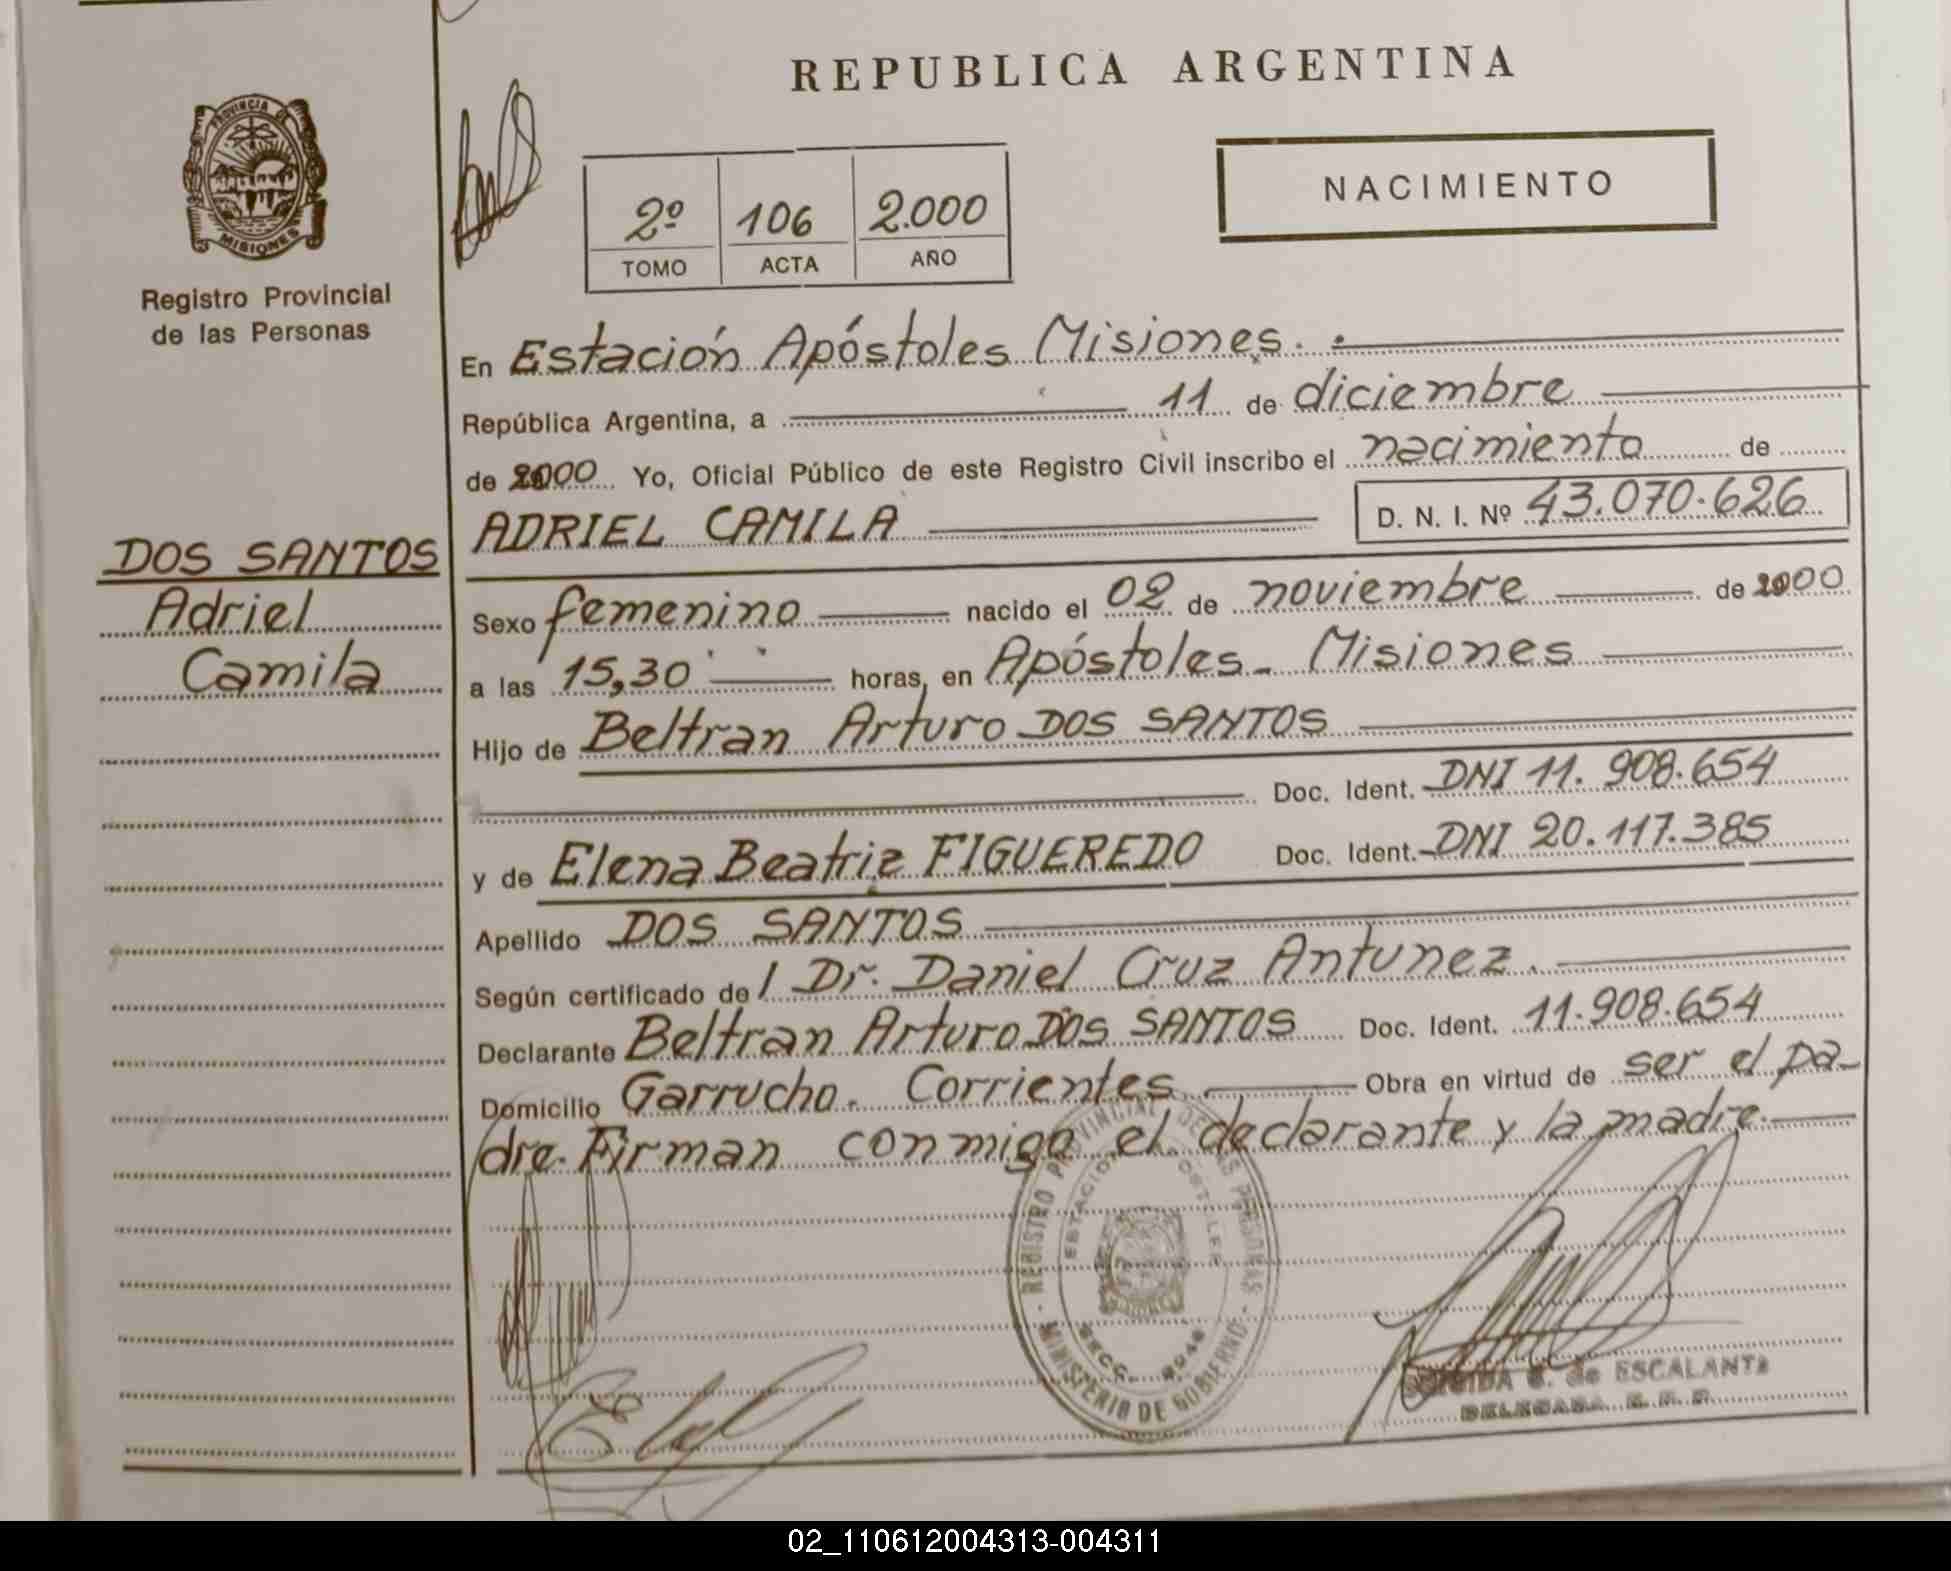 REPUBLICA ARGENTINA
PROVINCIA DE MISIONES
Registro Provincial
de las Personas
2º 106 2.000
TOMO ACTA AÑO
NACIMIENTO
En Estación Apóstoles Misiones.
República Argentina, a 11 de diciembre
de 2000 Yo, Oficial Público de este Registro Civil inscribo el nacimiento de
ADRIEL CAMILA D. N. I. Nº 43.070.626
DOS SANTOS
Adriel
Camila
Sexo femenino nacido el 02 de noviembre de 2000
a las 15,30 horas, en Apóstoles - Misiones
Hijo de Beltran Arturo DOS SANTOS
Doc. Ident. DNI 11.908.654
y de Elena Beatriz FIGUEREDO Doc. Ident. DNI 20.117.385
Apellido DOS SANTOS
Según certificado de / Dr. Daniel Cruz Antunez.
Declarante Beltran Arturo DOS SANTOS Doc. Ident. 11.908.654
Domicilio Garrucho. Corrientes Obra en virtud de ser el pa-
dre. Firman conmigo el declarante y la madre.
REGISTRO PROVINCIAL DE LAS PERSONAS
MINISTERIO DE GOBIERNO
de ESCALANTE
DELEGADA
02_110612004313-004311